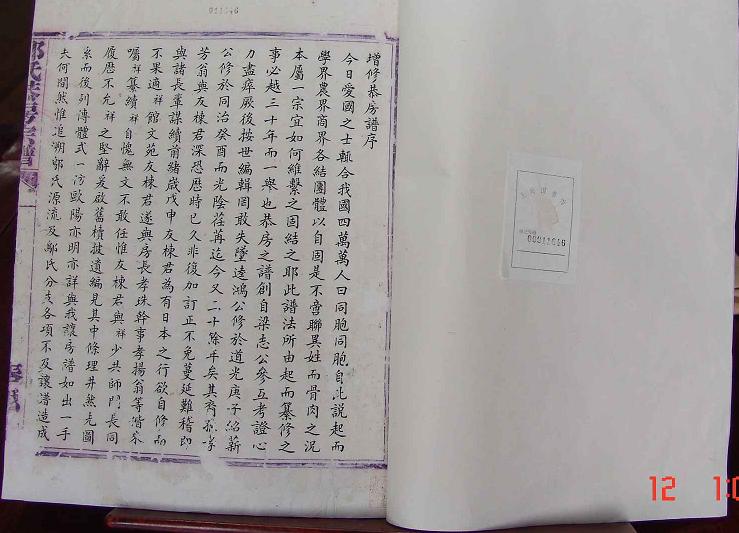 011646
增修恭房譜序
今日愛國之士輒合我國四萬萬人曰同胞同胞自此說起而
學界農界商界各結團體以自固是不啻聯異姓而骨肉之況
本屬一宗宜如何維繫之固結之耶此譜法所由起而纂修之
事必越三十年而一舉也恭房之譜創自梁志公參互考證心
力盡瘁厥後按世編輯罔敢失墜逵鴻公修於道光庚子紹薪
公修於同治癸酉而光陰荏苒迄今又二十餘年矣其裔孫孝
芳翁與友棟君深恐歷時已久非復加訂正不免蔓延難稽即
與諸長輩謀續前緒歲戊申友棟君為有日本之行欲自修而
不果適祥館文苑友棟君遂與房長孝珠幹事孝揚翁等偕來
囑祥纂續祥自愧無文不敢任惟友棟君與祥少共師門長同
履歷不允祥之堅辭爰啟舊櫝披遺編見其中條理井然先圖
系而後列傳體式一仿歐陽亦明亦詳與我讓房譜如出一手
夫何間然惟追溯鄔氏源流及鄔氏分支各項不及讓譜造成
上海圖書館
00911646
12